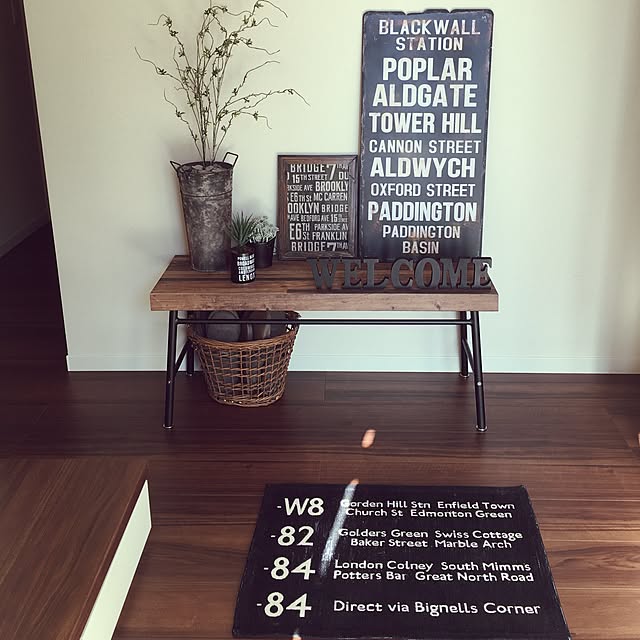 BLACKWALL
STATION
POPLAR
ALDGATE
TOWER HILL
CANNON STREET
ALDWYCH
OXFORD STREET
PADDINGTON
PADDINGTON
BASIN
BRIDGE 7
15TH STREET DU
KSIDE AVE BROOKLY
E6TH ST MC CARREN
OOKLYN BRIDGE
AVE BEDFORD AVE 15
E6TH ST PARKSIDE AV
ST FRANKLIN
BRIDGE 7
WELCOME
-W8 Gorden Hill Stn Enfield Town
Church St Edmonton Green
-82 Golders Green Swiss Cottage
Baker Street Marble Arch
-84 London Colney South Mimms
Potters Bar Great North Road
-84 Direct via Bignells Corner